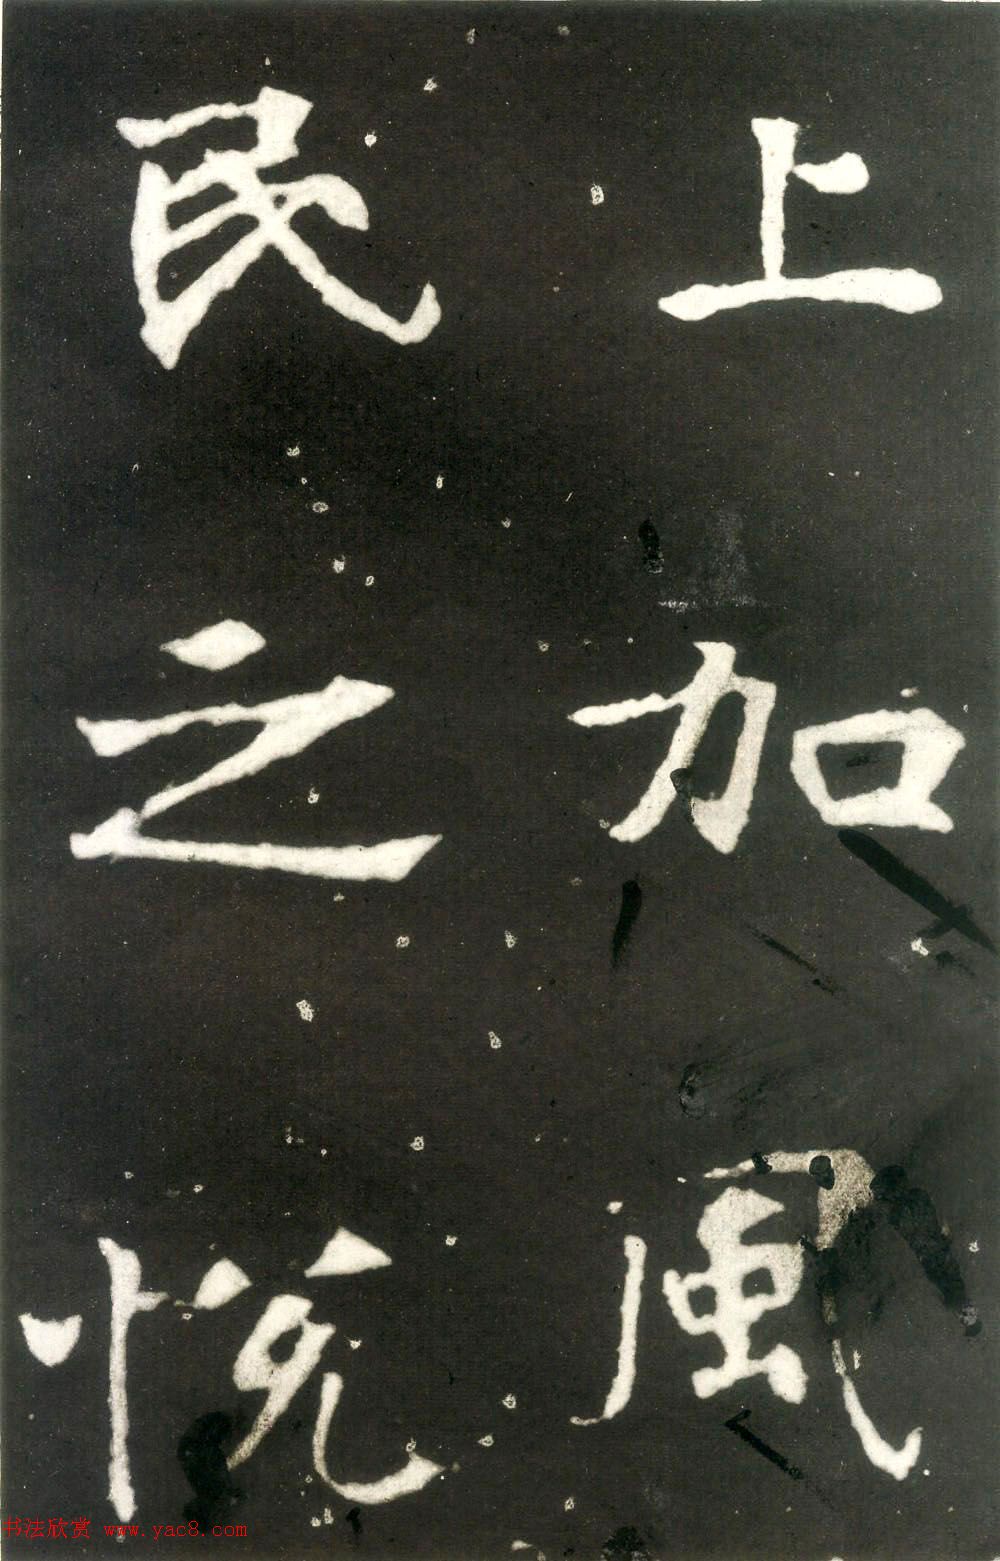 上加風
民之悅
书法欣赏 www.yac8.com